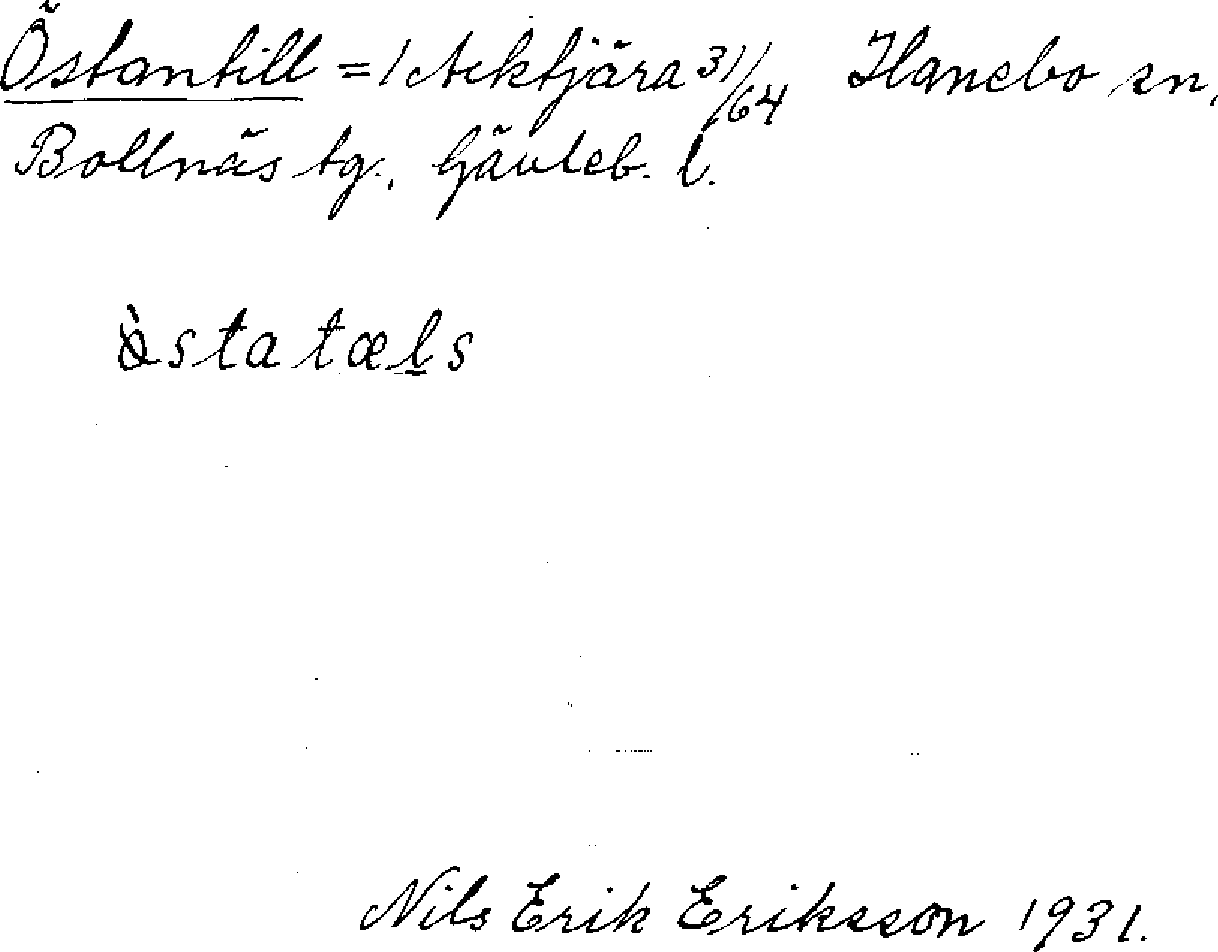 Östantill = 1 Acktjära 31/64 Hanebo sn,
Bollnäs tg., Gävleb. l.
östatæl̲s
Nils Erik Eriksson 1931.